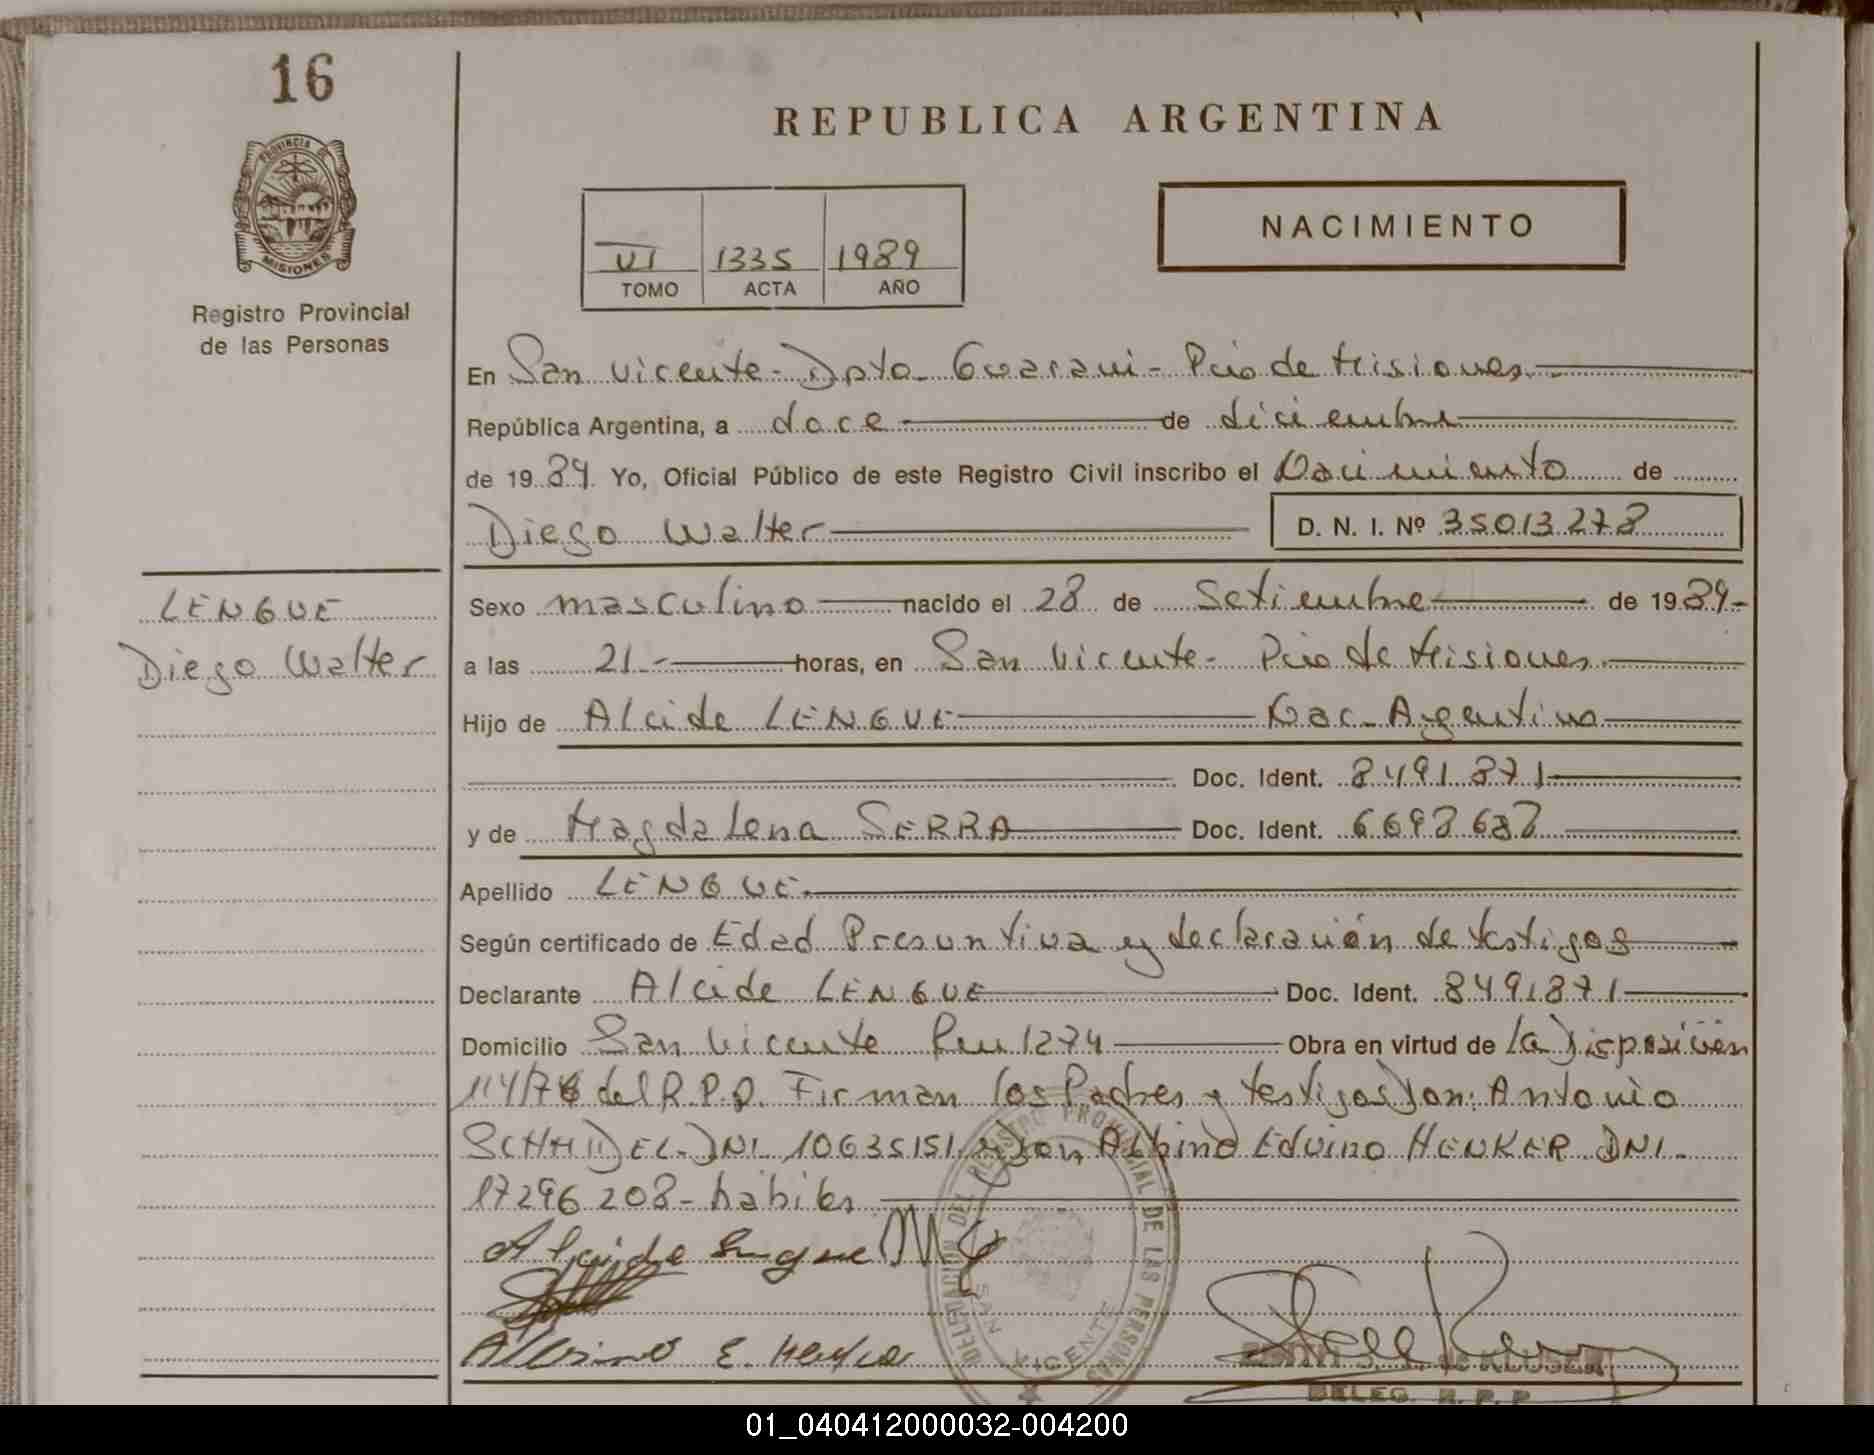 16
PROVINCIA DE
MISIONES
Registro Provincial
de las Personas
REPUBLICA ARGENTINA
VI 1335 1989
TOMO ACTA AÑO
NACIMIENTO
En San Vicente - Dpto Guarani - Pcia de Misiones
República Argentina, a doce de diciembre
de 1989. Yo, Oficial Público de este Registro Civil inscribo el Nacimiento de
Diego Walter D. N. I. Nº 35013278
LENGUE
Diego Walter
Sexo masculino nacido el 28 de Setiembre de 1989-
a las 21.- horas, en San Vicente - Pcia de Misiones
Hijo de Alcide LENGUE Nac. Argentino
Doc. Ident. 8491871
y de Magdalena SERRA Doc. Ident. 6698688
Apellido LENGUE
Según certificado de Edad Presuntiva y declaración de testigos
Declarante Alcide LENGUE Doc. Ident. 8491871
Domicilio San Vicente Km 1274 Obra en virtud de la Disposición
114/76 del R.P.P. Firman los Padres y testigos Don: Antonio
SCHMIDEL - DNI. 10635151 y Don Albino Edvino HENKER DNI.
17296208 - habiles
Alcide Lengue
Albino E. Henker
DELEGACION DEL REGISTRO PROVINCIAL DE LAS PERSONAS
SAN VICENTE
de KLUSER
DELEG. R. P. P.
01_040412000032-004200